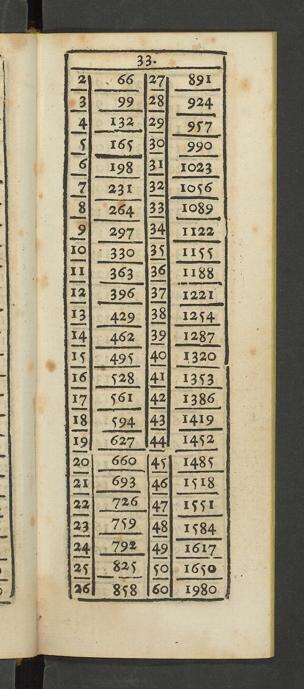 33.
2 66 27 891
3 99 28 924
4 132 29 957
5 165 30 990
6 198 31 1023
7 231 32 1056
8 264 33 1089
9 297 34 1122
10 330 35 1155
11 363 36 1188
12 396 37 1221
13 429 38 1254
14 462 39 1287
15 495 40 1320
16 528 41 1353
17 561 42 1386
18 594 43 1419
19 627 44 1452
20 660 45 1485
21 693 46 1518
22 726 47 1551
23 759 48 1584
24 792 49 1617
25 825 50 1650
26 858 60 1980